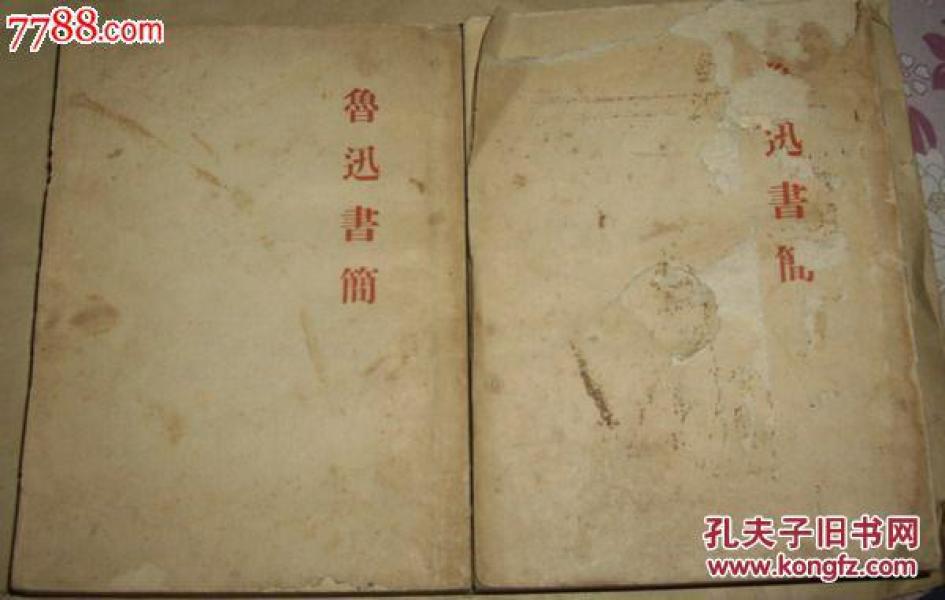 7788.com
魯迅書簡
迅書
孔夫子旧书网
www.kongfz.com